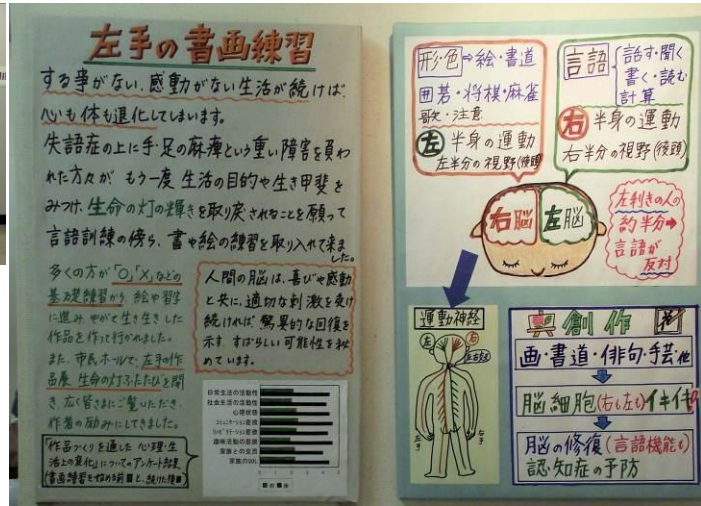 左手の書画練習
する事がない、感動がない生活が続けば、
心も体も退化してしまいます。
失語症の上に手・足の麻痺という重い障害を負わ
れた方々が もう一度 生活の目的や生き甲斐を
みつけ、生命の灯の輝きを取り戻されることを願って
言語訓練の傍ら、書や絵の練習を取り入れて来ま
した。
多くの方が「○」「×」などの
基礎練習から、絵や習字
に進み、やがて生き生きした
作品を作って行かれました。
また、市民ホールで、左手の作
品展、生命の灯ふたたびを開
き、広く皆さまにご覧いただき、
作者の励みにしてきました。
「作品づくりを通した心理・生
活上の変化」についてのアンケート結果
(書画練習を始める前■と、続けた後■)
人間の脳は、喜びや感動
と共に、適切な刺激を受け
続ければ、驚異的な回復を
示す、すばらしい可能性を秘
めています。
日常生活の活動性
社会生活の活動性
心理状態
コミュニケーション意欲
リハビリテーション意欲
趣味活動の意欲
家族との交流
家族のQOL
0 1 2 3 4 5
■前■後
形・色⇒絵・書道
囲碁・将棋・麻雀
歌・注意
左 半身の運動
左半分の視野(後頭)
言語 話す・聞く
書く・読む
計算
右 半身の運動
右半分の視野(後頭)
右脳 左脳
左利きの人の
約半分➡
言語が
反対
運動神経
左 右
左手 右手
創作
画・書道・俳句・手芸・他
脳細胞(右も左も)イキイキ!!
脳の修復(言語機能も)
認知症の予防